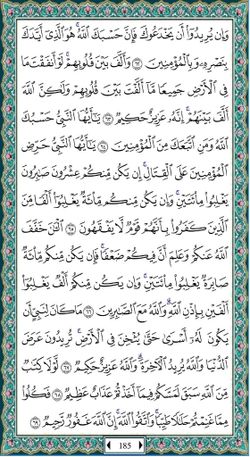 وَإِن يُرِيدُوٓا۟ أَن يَخْدَعُوكَ فَإِنَّ حَسْبَكَ ٱللَّهُ ۚ هُوَ ٱلَّذِىٓ أَيَّدَكَ
بِنَصْرِهِۦ وَبِٱلْمُؤْمِنِينَ ٦٢ وَأَلَّفَ بَيْنَ قُلُوبِهِمْ ۚ لَوْ أَنفَقْتَ مَا
فِى ٱلْأَرْضِ جَمِيعًا مَّآ أَلَّفْتَ بَيْنَ قُلُوبِهِمْ وَلَـٰكِنَّ ٱللَّهَ
أَلَّفَ بَيْنَهُمْ ۚ إِنَّهُۥ عَزِيزٌ حَكِيمٌ ٦٣ يَـٰٓأَيُّهَا ٱلنَّبِىُّ حَسْبُكَ
ٱللَّهُ وَمَنِ ٱتَّبَعَكَ مِنَ ٱلْمُؤْمِنِينَ ٦٤ يَـٰٓأَيُّهَا ٱلنَّبِىُّ حَرِّضِ
ٱلْمُؤْمِنِينَ عَلَى ٱلْقِتَالِ ۚ إِن يَكُن مِّنكُمْ عِشْرُونَ صَـٰبِرُونَ
يَغْلِبُوا۟ مِا۟ئَتَيْنِ ۚ وَإِن يَكُن مِّنكُم مِّا۟ئَةٌ يَغْلِبُوٓا۟ أَلْفًا مِّنَ
ٱلَّذِينَ كَفَرُوا۟ بِأَنَّهُمْ قَوْمٌ لَّا يَفْقَهُونَ ٦٥ ٱلْـَٔـٰنَ خَفَّفَ
ٱللَّهُ عَنكُمْ وَعَلِمَ أَنَّ فِيكُمْ ضَعْفًا ۚ فَإِن يَكُن مِّنكُم مِّا۟ئَةٌ
صَابِرَةٌ يَغْلِبُوا۟ مِا۟ئَتَيْنِ ۚ وَإِن يَكُن مِّنكُمْ أَلْفٌ يَغْلِبُوٓا۟
أَلْفَيْنِ بِإِذْنِ ٱللَّهِ ۗ وَٱللَّهُ مَعَ ٱلصَّـٰبِرِينَ ٦٦ مَا كَانَ لِنَبِىٍّ أَن
يَكُونَ لَهُۥٓ أَسْرَىٰ حَتَّىٰ يُثْخِنَ فِى ٱلْأَرْضِ ۚ تُرِيدُونَ عَرَضَ
ٱلدُّنْيَا وَٱللَّهُ يُرِيدُ ٱلْـَٔاخِرَةَ ۗ وَٱللَّهُ عَزِيزٌ حَكِيمٌ ٦٧ لَّوْلَا كِتَـٰبٌ
مِّنَ ٱللَّهِ سَبَقَ لَمَسَّكُمْ فِيمَآ أَخَذْتُمْ عَذَابٌ عَظِيمٌ ٦٨ فَكُلُوا۟
مِمَّا غَنِمْتُمْ حَلَـٰلًا طَيِّبًا ۚ وَٱتَّقُوا۟ ٱللَّهَ ۚ إِنَّ ٱللَّهَ غَفُورٌ رَّحِيمٌ ٦٩
185